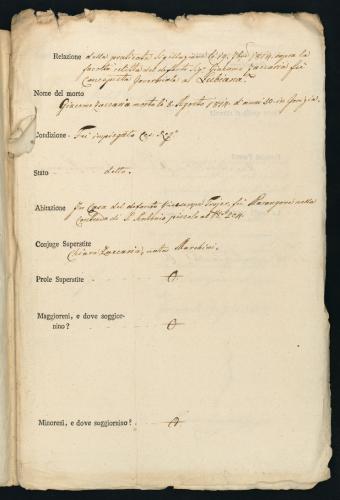 Relazione della praticata Sigillazione li 14. 1814. sopra la
facoltà relitta dal defunto Sigr Giacomo Zaccaria fu
Governiale a Lubiana.
Nome del morto
Giacomo Zaccaria morto li 8. Agosto 1814. d'anni 50. in Gorizia.
Condizione. Fu impiegato
Stato detto.
Abitazione In Casa del defunto Giuseppe nella
Contrada di S. Antonio piccolo al No 204.
Conjuge Superstite
Chiara Zaccaria, nata Marchini.
Prole Superstite O
Maggioreni, e dove soggior-
nino? O
Minoresi, e dove soggiornino? O